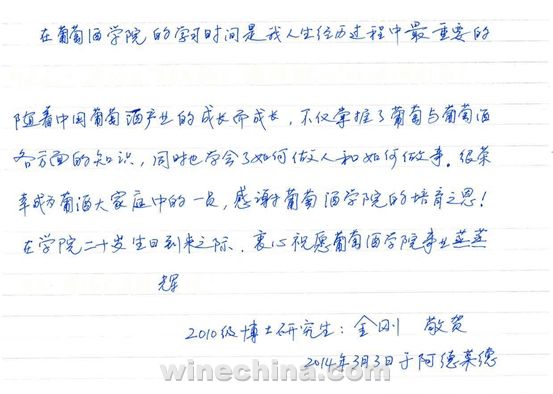 在葡萄酒学院的学习时间是我人生经历过程中最重要的
随着中国葡萄酒产业的成长而成长，不仅掌握了葡萄与葡萄酒
各方面的知识，同时也学会了如何做人和如何做事。很荣
幸成为葡酒大家庭中的一员，感谢葡萄酒学院的培育之恩！
在学院二十岁生日到来之际，衷心祝愿葡萄酒学院事业蒸蒸
辉
2010级博士研究生：金刚 敬贺
2014年3月3日于阿德莱德
www.winechina.com